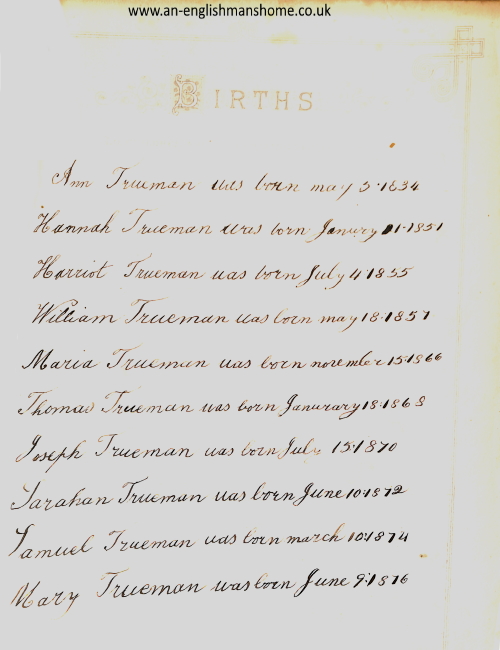 www.an-englishmanshome.co.uk
BIRTHS
Ann Trueman was born may 3·1834
Hannah Trueman was born Janury 1·1851
Harriot Trueman was born July 4 1855
William Trueman was born may 18·1857
Maria Trueman was born november 15·1866
Thomas Trueman was born Janurary 18·1868
Joseph Trueman was born July 15·1870
Sarahan Trueman was born June 10·1872
Samuel Trueman was born march 10·1874
Mary Trueman was born June 9·1876